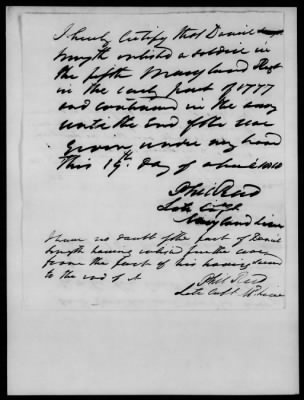 I hereby Certify that Daniel
Smyth enlisted a soldier in
the fifth Maryland Regt
in the early part of 1777
and continued in the army
until the End of the war
given under my hand
This 19th day of 1810
Phil Reed
Late Capt
Maryland Line
I have no doubt of the fact of Daniel
Smyth having enlisted for the war
from the fact of his having served
to the end of it
Phil Reed
Late Capt Md Line